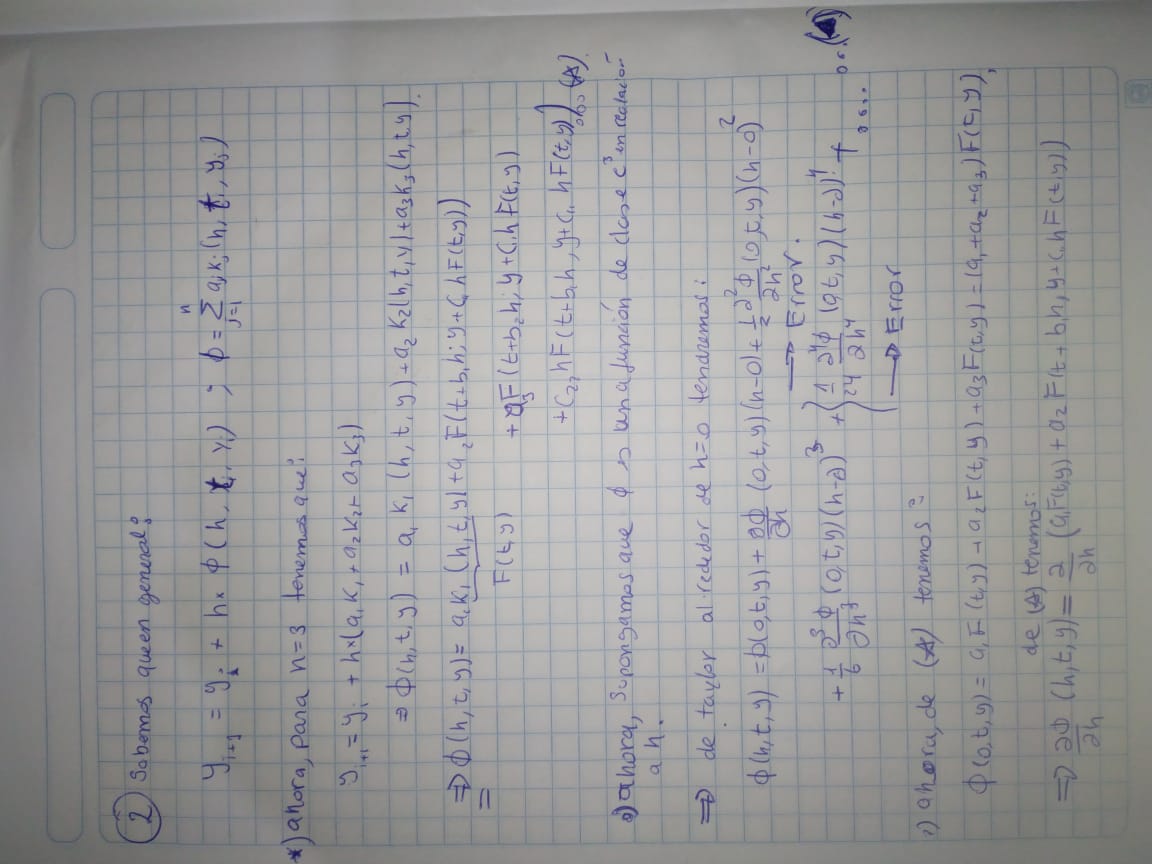 ② Sabemos que en general:
y_{i+1} = y_i + h × ϕ(h, t_i, y_i) ; ϕ = Σ_{j=1}^{n} a_j k_j (h, t_i, y_i)
*) ahora, para n=3 tenemos que:
y_{i+1} = y_i + h×(a_1 k_1 + a_2 k_2 + a_3 k_3)
⇒ ϕ(h, t, y) = a_1 k_1 (h, t, y) + a_2 k_2 (h, t, y) + a_3 k_3 (h, t, y).
⇒ ϕ(h, t, y) = a_1 k_1 (h, t, y) + a_2 F(t+b_1 h; y+c_1 h F(t,y))
F(t, y)
+ a_3 F (t+b_2 h; y+c_1 h F(t, y)
+ c_{22} h F(t+b_1 h, y+c_{11} h F(t, y))) ... (A).
•) ahora, Supongamos que ϕ es una función de clase c³ en realación
a h.
⇒ de taylor alrededor de h=0 tendremos:
ϕ(h, t, y) = ϕ(0, t, y) + ∂ϕ/∂h (0, t, y)(h-0) + 1/2 ∂²ϕ/∂h² (0, t, y)(h-0)²
→ Error.
+ 1/6 ∂³ϕ/∂h³ (0, t, y)(h-0)³ + { 1/24 ∂⁴ϕ/∂h⁴ (0, t, y)(h-0)⁴ + ....
→ Error
•) ahora, de (A) tenemos:
ϕ(0, t, y) = a_1 F(t, y) + a_2 F(t, y) + a_3 F(t, y) = (a_1 + a_2 + a_3) F(t, y),
de (A) tenemos:
⇒ ∂ϕ/∂h (h, t, y) = ∂/∂h (a_1 F(t, y) + a_2 F(t + b_1 h, y+c_1 h F(t, y))